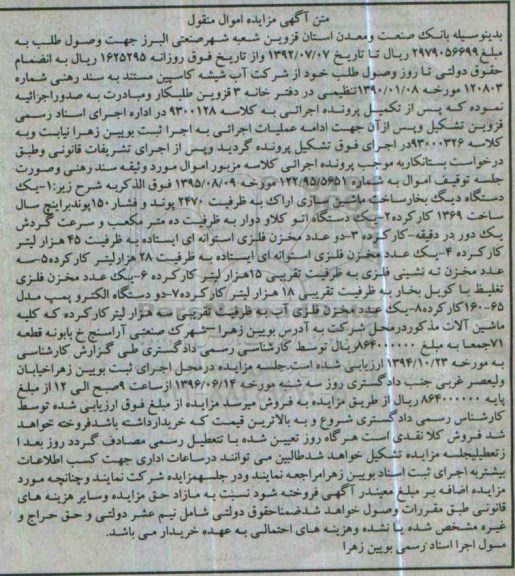 متن آگهی مزایده اموال منقول
بدینوسیله بانک صنعت ومعدن استان قزوین شعبه شهرصنعتی البرز جهت وصول طلب به
مبلغ ۲۹۷۹۰۵۶۶۹۹ ریال تا تاریخ ۱۳۹۲/۰۷/۰۷ واز تاریخ فوق روزانه ۱۶۲۵۲۹۵ ریال به انضمام
حقوق دولتی تا روز وصول طلب خود از شرکت آب شیشه کاسپین مستند به سند رهنی شماره
۱۲۰۸۰۳ مورخه ۱۳۹۰/۰۱/۰۸تنظیمی در دفتر خانه ۳ قزوین طلبکار ومبادرت به صدوراجرائیه
نموده که پس از تکمیل پرونده اجرائی به کلاسه ۹۳۰۰۱۲۸ در اداره اجرای اسناد رسمی
قزوین تشکیل وپس ازآن جهت ادامه عملیات اجرائی به اجرا ثبت بویین زهرا نیابت وبه
کلاسه ۹۳۰۰۰۳۲۶در اجرای فوق تشکیل پرونده گردید وپس از اجرای تشریفات قانونی وطبق
درخواست بستانکاربه موجب پرونده اجرائی کلاسه مزبور اموال مورد وثیقه سند رهنی وصورت
جلسه توقیف اموال به شماره ۱۲۲/۹۵/۵۶۵۱ مورخه ۱۳۹۵/۰۸/۰۹ فوق الذکربه شرح زیر:۱-یک
دستگاه دیگ بخارساخت ماشین سازی اراک به ظرفیت ۲۴۷۰ پوند و فشار ۱۵۰پوندبراینچ سال
ساخت ۱۳۶۹ کارکرده۲-یک دستگاه اتو کلاو دوار به ظرفیت ده متر مکعب و سرعت گردش
یک دور در دقیقه-کارکرده ۳-دو عدد مخزن فلزی استوانه ای ایستاده به ظرفیت ۴۵ هزار لیتر
کارکرده ۴-یک عدد مخزن فلزی استوانه ای ایستاده به ظرفیت ۲۸ هزارلیتر کارکرده۵-سه
عدد مخزن ته نشینی فلزی به ظرفیت تقریبی ۱۵هزار لیتر کارکرده ۶-یک عدد مخزن فلزی
تغلیظ با کویل بخار به ظرفیت تقریبی ۱۸ هزار لیتر کارکرده۷-دو دستگاه الکترو پمپ مدل
۶۵-۱۶۰کارکرده۸-یک عدد مخزن فلزی آب به ظرفیت تقریبی سه هزار لیترکارکرده که کلیه
ماشین آلات مذکوردرمحل شرکت به آدرس بویین زهرا-شهرک صنعتی آراسنج خ بابونه قطعه
۷۱جمعا به مبلغ ۸۶۴۰۰۰۰۰۰۰ریال توسط کارشناسی رسمی دادگستری طی گزارش کارشناسی
به مورخه ۱۳۹۴/۱۰/۲۳ ارزیابی شده است.جلسه مزایده درمحل اجرای ثبت بویین زهراخیابان
ولیعصر غربی جنب دادگستری روز سه شنبه مورخه ۱۳۹۶/۰۶/۱۴ ازساعت ۹صبح الی ۱۲ از مبلغ
پایه ۸۶۴۰۰۰۰۰۰۰ ریال از طریق مزایده به فروش میرسد.مزایده از مبلغ فوق ارزیابی شده توسط
کارشناس رسمی دادگستری شروع و به بالاترین قیمت که خریدارداشته باشدفروخته خواهد
شد فروش کلا نقدی است هرگاه روز تعیین شده با تتعطیل رسمی مصادف گردد روز بعد ا
زتعطیلیجلسه مزایده تشکیل خواهد شدطالبین می توانند درساعات اداری جهت کسب اطلاعات
بیشتربه اجرای ثبت اسناد بویین زهرامراجعه نمایند ودر جلسهمزایده شرکت نمایند وچنانچه مورد
مزایده اضافه بر مبلغ معیندر آگهی فروخته شود نسبت به مازاد حق مزایده وسایر هزینه های
قانونی طبق مقررات وصول خواهد شدضمناحقوق دولتی شامل نیم عشر دولتی و حق حراج و
غیره مشخص شده یا نشده وهزینه های احتمالی به عهده خریدار می باشد.
مسول اجرا اسناد رسمی بویین زهرا